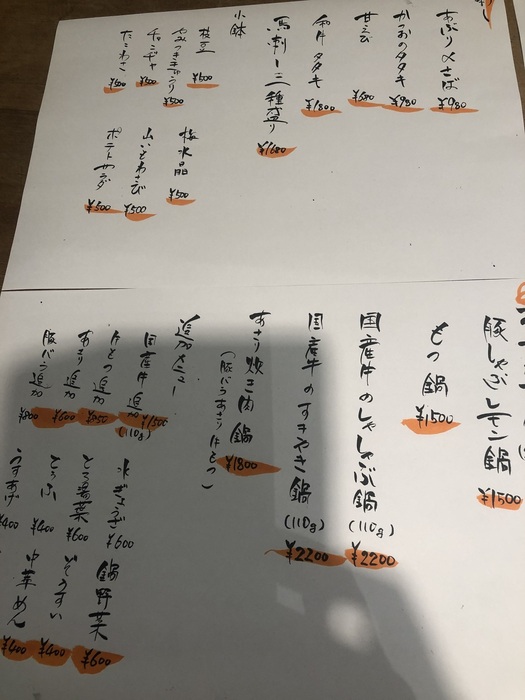 あぶり〆さば ¥980
かつおのタタキ ¥980
甘えび
和牛タタキ ¥1800
馬刺し三種盛り ¥1680
小鉢
枝豆 ¥500
¥500
チャンジャ ¥500
たこわさ ¥500
梅水晶 ¥500
山いもわさび ¥500
ポテトサラダ ¥500
豚しゃぶレモン鍋 ¥1500
もつ鍋 ¥1500
国産牛のしゃしゃぶ鍋 (110g) ¥2200
国産牛のすきやき鍋 (110g) ¥2200
あさり炊き肉鍋 ¥1800
(豚バラあさりはもつ)
追加メニュー
国産牛追加 ¥1500 (110g)
追加
あさり追加 ¥600
豚バラ追加 ¥800
水ぎょうざ ¥600
とろ湯葉 ¥600
とうふ ¥400
うすあげ ¥400
鍋野菜 ¥600
ぞうすい ¥400
中華めん ¥400